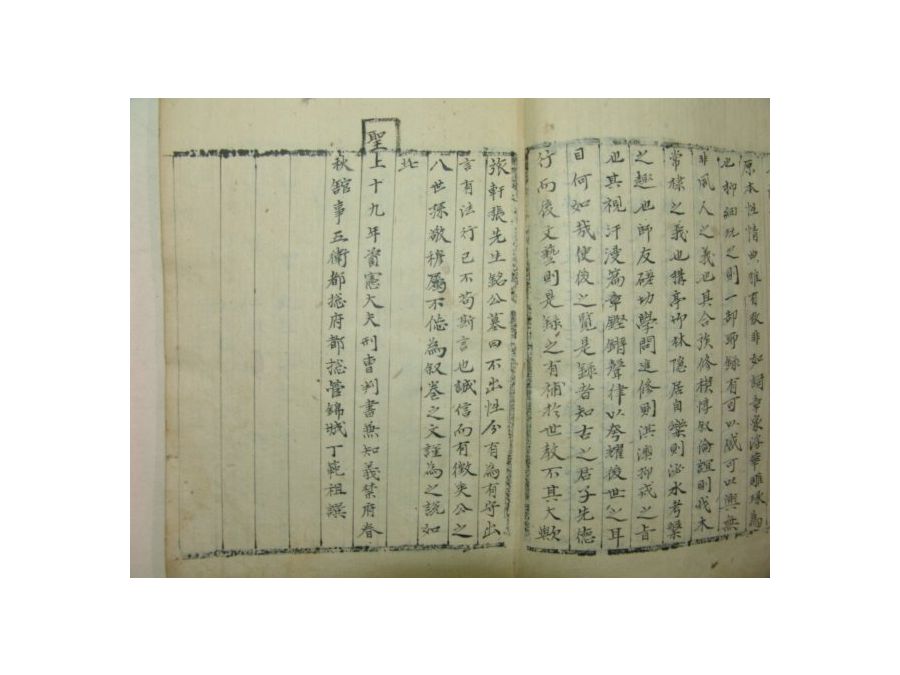 原本性情典雅有致非如詞章家浮華雕琢爲
也抑細玩之則一部聊錄有可以感可以興無
非風人之義也其合族修禊惇叙倫誼則伐木
常棣之義也構亭竹林隱居自樂則泌水考槃
之趣也師友磋切學問進修則淇澳抑戒之旨
也其視汗漫篇章鏗鏘聲律以夸耀後世之耳
目何如哉使後之覽是錄者知古之君子先德
行而後文藝則是錄之有補於世敎不其大歟
張先生銘公墓曰不出性分有爲有守出
言有法行己不苟斯言也誠信而有徵矣公之
八世孫敬穆屬不佞爲叙卷之文謹爲之說如
此
聖上十九年資憲大夫刑曹判書兼知義禁府春
秋館事五衛都摠府都摠管錦城丁範祖譔